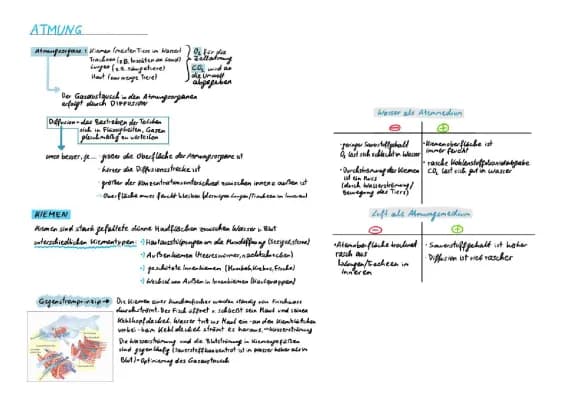 ATMUNG
Atmungsorgane: Kiemen (meisten Tiere im Wasser)
Tracheen (z.B. Insekten an Land)
Lungen (z.B. Säugetiere)
Haut (nur wenige Tiere)
O₂ für die
Zellatmung
CO₂ wird an
die Umwelt
abgegeben
Der Gasaustausch in den Atmungsorganen
erfolgt durch DIFFUSION
Diffusion = das Bestreben der Teilchen
sich in Flüssigkeiten, Gasen
gleichmäßig zu verteilen
umso besser, je... größer die Oberfläche der Atmungsorgane ist
kürzer die Diffusionsstrecke ist
größer der Konzentrationsunterschied zwischen innen & außen ist
Oberfläche muss feucht bleiben (deswegen Lungen/Tracheen im Inneren)
KIEMEN
Kiemen sind stark gefaltete dünne Hautflächen zwischen Wasser u. Blut
unterschiedlichen Kiementypen: Hautausstülpungen um die Mundöffnung (Seeigel, Sterne)
Außenkiemen (Meereswürmer, Nacktschnecken)
geschützte Innenkiemen (Muscheln, Krebse, Fische)
Wechsel von Außen in Innenkiemen (Kaulquappen)
Gegenstromprinzip → Die Kiemen eines Knochenfisches werden ständig von Frischwasser
durchströmt. Der Fisch öffnet u. schließt sein Maul und seinen
Kiemendeckel. Wasser tritt ins Maul ein - an den Kiemblättchen
vorbei - beim Kiemendeckel strömt es heraus. → Wasserströmung
Die Wasserströmung und die Blutströmung in Kiemengefäßen
sind gegenläufig (Sauerstoffkonzentrat. ist in Wasser höher als in
Blut) = Optimierung des Gasaustausch
Wasser als Atemmedium
geringer Sauerstoffgehalt
O₂ löst sich schlecht in Wasser
Durchströmung der Kiemen
ist ein Muss
(durch Wasserströmung /
Bewegung des Tiers)
Kiemenoberfläche ist
immer feucht
rasche Kohlenstoffdioxidabgabe
CO₂ löst sich gut in Wasser
Luft als Atmungsmedium
Atemoberfläche trocknet
rasch aus
Lungen/Tracheen im
Inneren
Sauerstoffgehalt ist höher
Diffusion ist viel rascher